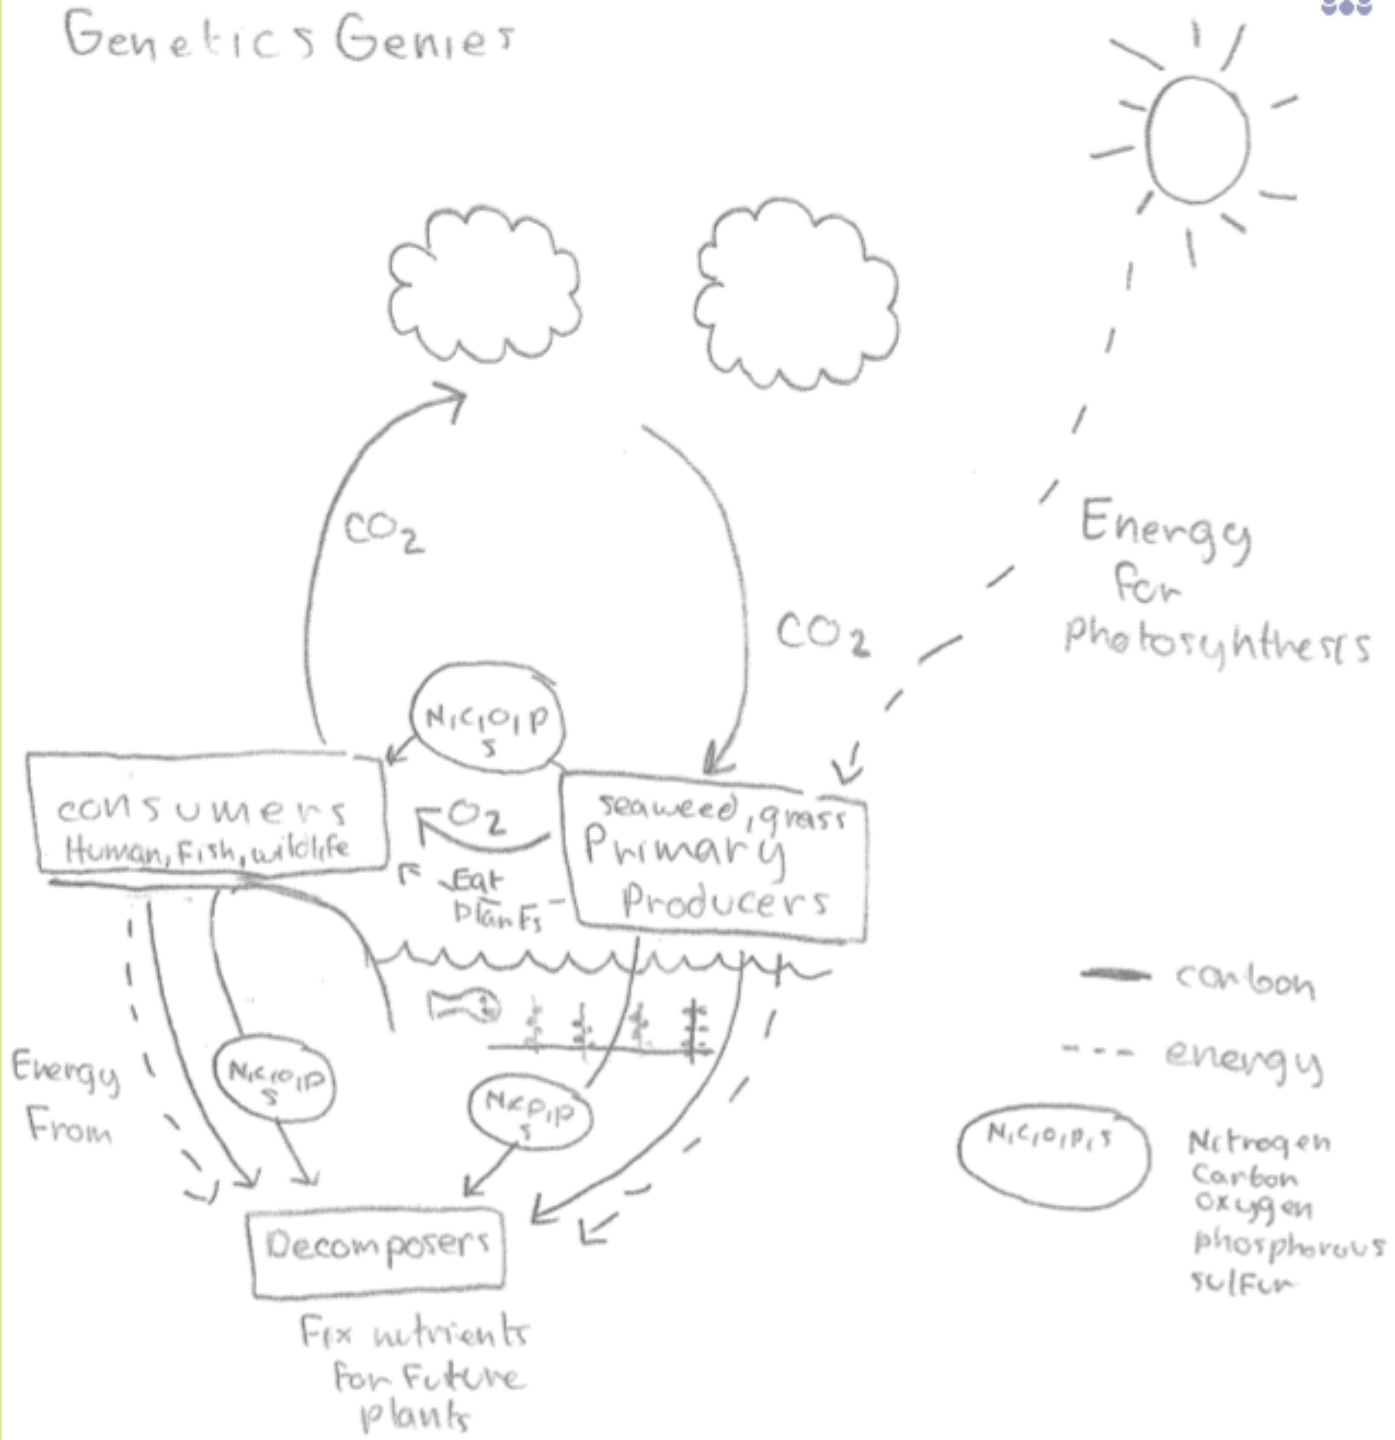 Genetics Genies
CO2
CO2
Energy
For
photosyhthesis
N,C,O,P
S
consumers
Human, Fish, wildlife
O2
Eat
plants
seaweed, grass
Primary
Producers
Energy
From
N,C,O,P
S
N,C,O,P
S
Decomposers
Fix nutrients
For Future
plants
carbon
energy
N,C,O,P,S
Nitrogen
Carbon
oxygen
phosphorous
sulfur